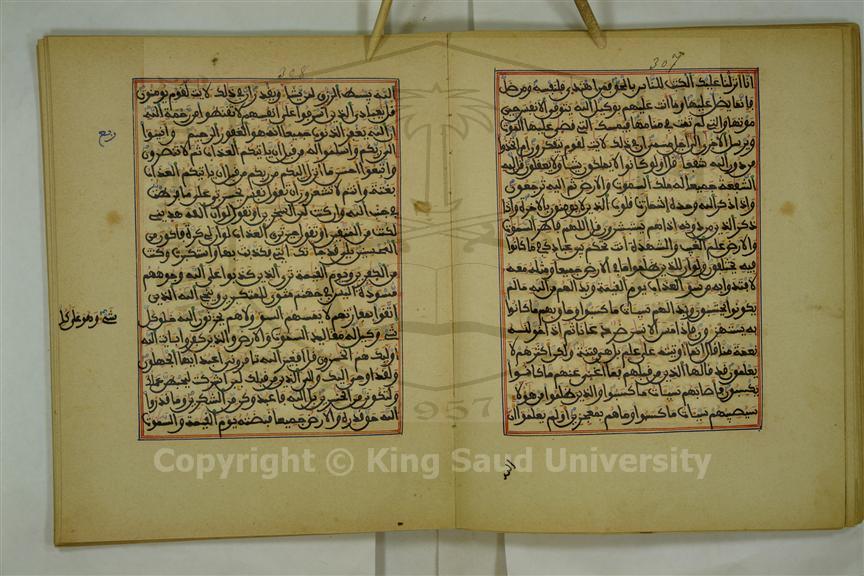 307
انا انزلنا عليك الكتب للناس بالحق فمن اهتدى فلنفسه ومن ضل
فإنما يضل عليها وما انت عليهم بوكيل الله يتوفى الانفس حين
موتها والتي لم تمت في منامها فيمسك التي قضى عليها الموت
ويرسل الاخرى الى اجل مسمى ان في ذلك لايت لقوم يتفكرون ام اتخذوا
من دون الله شفعاء قل اولو كانوا لا يملكون شيئا ولا يعقلون قل لله
الشفعة جميعا له ملك السموت والارض ثم اليه ترجعون
واذا ذكر الله وحده اشمازت قلوب الذين لا يومنون بالاخرة واذا
ذكر الذين من دونه اذا هم يستبشرون قل اللهم فاطر السموت
والارض علم الغيب والشهدة انت تحكم بين عبادك في ما كانوا
فيه يختلفون ولو ان للذين ظلموا ما في الارض جميعا ومثله معه
لافتدوا به من سوء العذاب يوم القيمة وبدا لهم من الله ما لم
يكونوا يحتسبون وبدا لهم سيئات ما كسبوا وحاق بهم ما كانوا
به يستهزءون فاذا مس الانسن ضر دعانا ثم اذا خولنه
نعمة منا قال انما اوتيته على علم بل هي فتنة ولكن اكثرهم لا
يعلمون قد قالها الذين من قبلهم فما اغنى عنهم ما كانوا
يكسبون فاصابهم سيئات ما كسبوا والذين ظلموا من هؤلاء
سيصيبهم سيئات ما كسبوا وما هم بمعجزين اولم يعلموا ان
الله
308
الله يبسط الرزق لمن يشاء ويقدر ان في ذلك لايت لقوم يومنون
قل يعبادي الذين اسرفوا على انفسهم لا تقنطوا من رحمة الله
ان الله يغفر الذنوب جميعا انه هو الغفور الرحيم وانيبوا
ربع
الى ربكم واسلموا له من قبل ان ياتيكم العذاب ثم لا تنصرون
واتبعوا احسن ما انزل اليكم من ربكم من قبل ان ياتيكم العذاب
بغتة وانتم لا تشعرون ان تقول نفس يحسرتى على ما فرطت
في جنب الله وان كنت لمن السخرين او تقول لو ان الله هديني
لكنت من المتقين او تقول حين ترى العذاب لو ان لي كرة فاكون من
المحسنين بلى قد جاءتك ايتي فكذبت بها واستكبرت وكنت
من الكفرين ويوم القيمة ترى الذين كذبوا على الله وجوههم
مسودة اليس في جهنم مثوى للمتكبرين وينجي الله الذين
اتقوا بمفازتهم لا يمسهم السوء ولا هم يحزنون الله خلق كل
شيء وهو على كل
شيء وكيل له مقاليد السموت والارض والذين كفروا بايات الله
اوليك هم الخسرون قل افغير الله تامروني اعبد ايها الجهلون
ولقد اوحي اليك والى الذين من قبلك لين اشركت ليحبطن عملك
ولتكونن من الخسرين بل الله فاعبد وكن من الشكرين وما قدروا
الله حق قدره والارض جميعا قبضته يوم القيمة والسموت
1957
Copyright © King Saud University